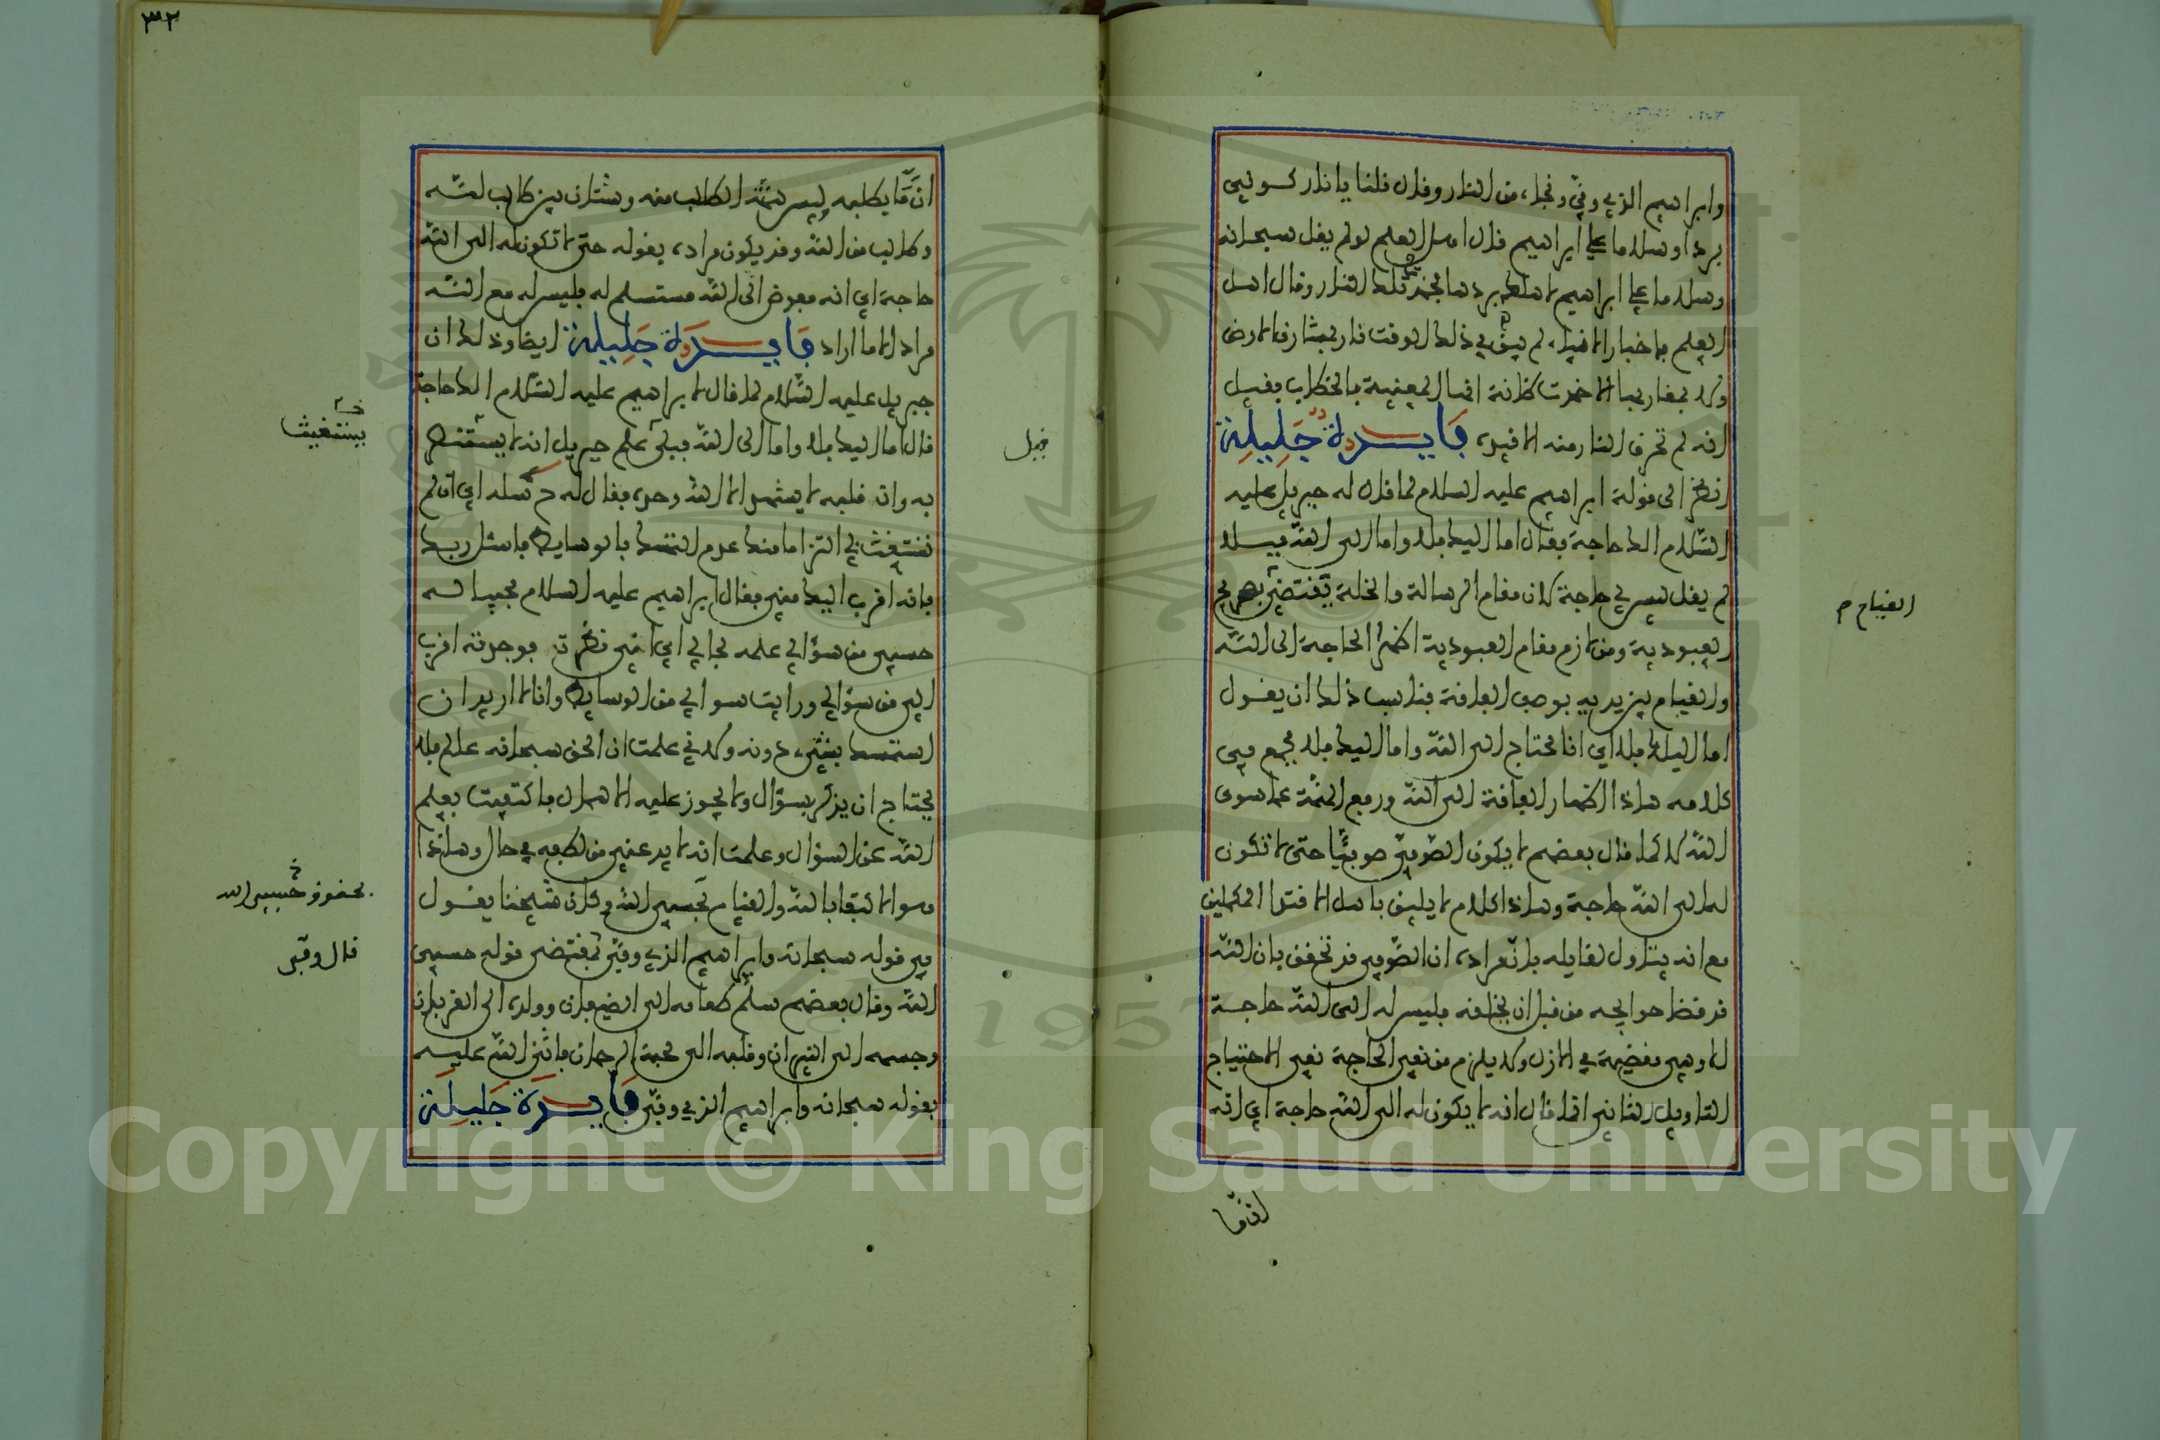 وابراهيم الذي وفى ونجاه من النار وقال قلنا يا نار كوني
بردا وسلاما على ابراهيم قال اهل العلم لو لم يقل سبحانه
وسلاما على ابراهيم لاهلكه بردها فخمدت تلك النار وقال اهل
العلم باخبار الانبياء لم يبق في ذلك الوقت نار بمشارق الارض
ولا بمغاربها الا خمدت ظانة انها المعنية بالخطاب بقيل
انه لم تحرق النار منه الا قيده فايدة جليلة
انظر الى قولة ابراهيم عليه السلام لما قال له جبريل عليه
السلام الك حاجة فقال اما اليك فلا واما الى الله فبلى
لم يقل ليس لي حاجة لان مقام الرسالة والخلة يقتضي
العبودية ومن لازم مقام العبودية اظهار الحاجة الى الله
والقيام بين يديه بوصف الفاقة فناسب ذلك ان يقول
اما اليك فلا اي انا محتاج الى الله واما اليك فلا فجمع في
كلامه هذا اظهار الفاقة الى الله ورفع الهمة عما سوى
الله لا كما قال بعضهم لا يكون الصوفي صوفيا حتى لا تكون
له الى الله حاجة وهذا كلام لا يليق باهل الاقتدا المكملين
مع انه يتاول لقايله بان مراده ان الصوفي قد تحقق بان الله
قد قضا حوايجه من قبل ان يخلقه فليس له الى الله حاجة
الا وهي مقضية في الازل ولا يلزم من نفي الحاجة نفي الاحتياج
التاويل الثاني انما قال انه لا يكون له الى الله حاجة اي انه
انما
القيام
٣٢
انما يطلبه وليس همته الطلب منه وشتان بين طالب لله
وطالب من الله وقد يكون مراده بقوله حتى لا تكون له الى الله
حاجة اي انه مفوض الى الله مستسلم له فليس له مع الله
مراد الا ما اراد فايدة جليلة ايضا وذلك ان
جبريل عليه السلام لما قال لابراهيم عليه السلام الك حاجة
قال اما اليك فلا واما الى الله فبلى علم جبريل انه لا يستنصر
به وان قلبه لا يشهد الا الله وحده فقال له ح سله اي ان لم
تستغث بي التزاما منك عدم التمسك بالوسايط فاسئل ربك
فانه اقرب اليك مني فقال ابراهيم عليه السلام مجيبا له
حسبي من سؤالي علمه بحالي اي اني نظرت فوجدته اقرب
الي من سؤالي ورايت سوالي من الوسايط وانا لا اريد ان
استمسك بشيء دونه ولاني علمت ان الحق سبحانه عالم فلا
يحتاج ان يذكر بسؤال ولا يجوز عليه الاهمال فاكتفيت بعلم
الله عن السؤال وعلمت انه لا يدعني من لطفه في حال وهذا
هو الاكتفا بالله والقيام بحسبي الله وكان شيخنا يقول
في قوله سبحانه وابراهيم الذي وفى بمقتضى قوله حسبي
الله وقال بعضهم سلم طعامه الى الضيفان وولده الى القربان
وجسمه الى النيران وقلبه الى محبة الرحمان فاثنى الله عليه
بقوله سبحانه وابراهيم الذي وفى فايدة جليلة
قيل
يستغيث
بحقوق حسبي الله
قال وفى
1957
Copyright © King Saud University